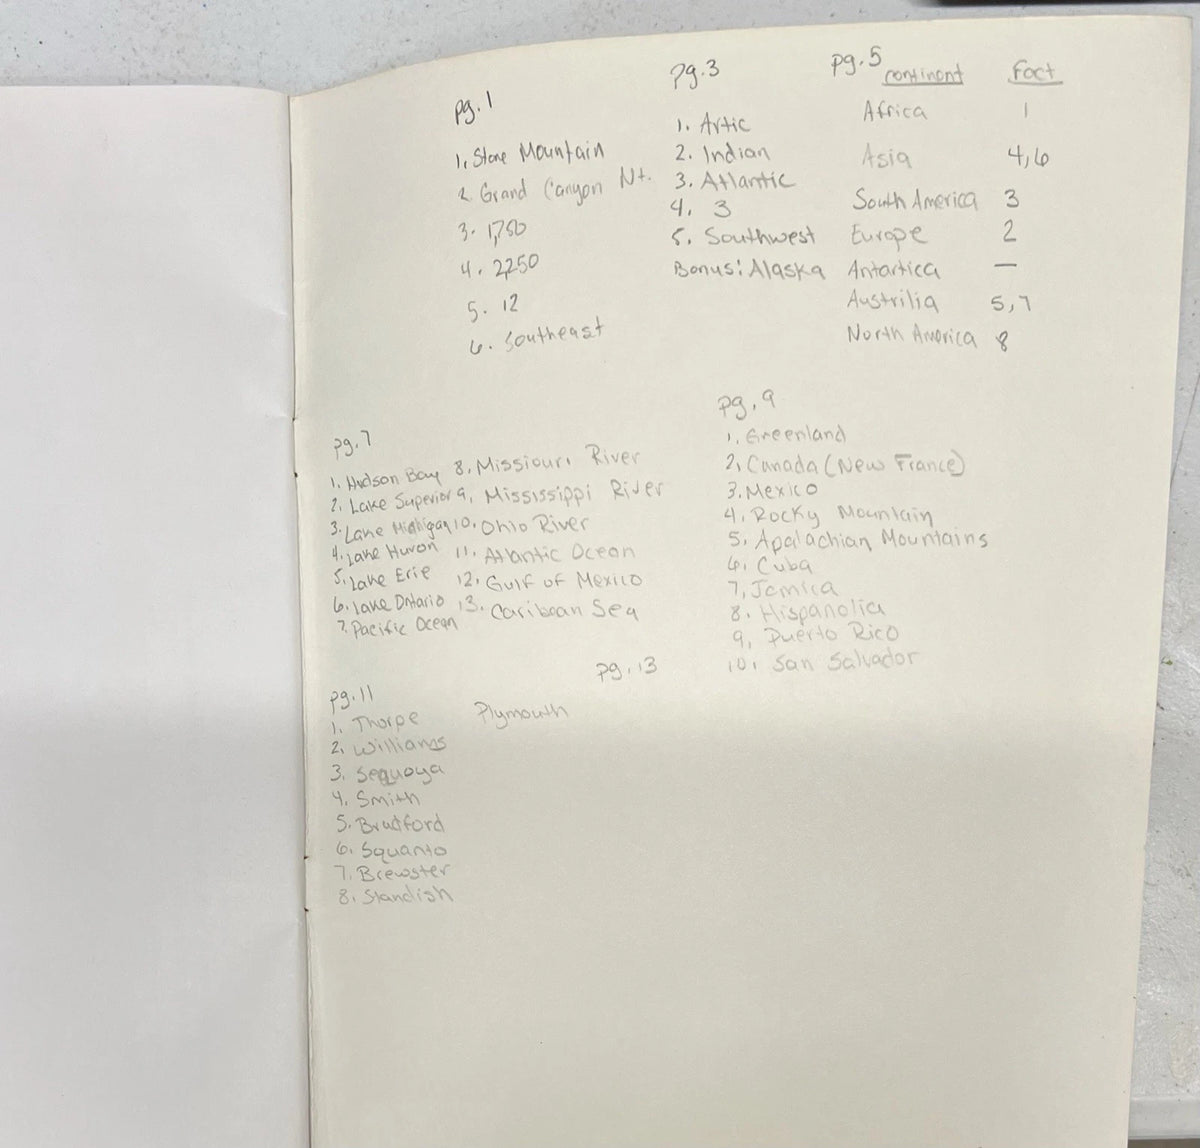 pg. 1
1. Stone Mountain
2. Grand Canyon Nt.
3. 1,750
4. 2,250
5. 12
6. Southeast
pg. 3
1. Artic
2. Indian
3. Atlantic
4. 3
5. Southwest
Bonus: Alaska
pg. 5
continent Fact
Africa 1
Asia 4,6
South America 3
Europe 2
Antartica —
Austrilia 5,7
North America 8
pg. 7
1. Hudson Bay
2. Lake Superior
3. Lake Michigan
4. Lake Huron
5. Lake Erie
6. Lake Ontario
7. Pacific Ocean
8. Missiouri River
9. Mississippi River
10. Ohio River
11. Atlantic Ocean
12. Gulf of Mexico
13. Caribean Sea
pg. 9
1. Greenland
2. Canada (New France)
3. Mexico
4. Rocky Mountain
5. Apalachian Mountains
6. Cuba
7. Jamica
8. Hispanolia
9. Puerto Rico
10. San Salvador
pg. 11
1. Thorpe
2. Williams
3. Sequoya
4. Smith
5. Bradford
6. Squanto
7. Brewster
8. Standish
pg. 13
Plymouth